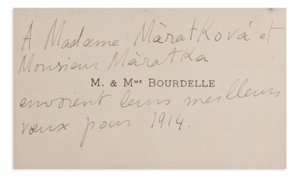 A Madame Màratková et
Monsieur Màratka
M. & MME BOURDELLE
envoient leurs meilleurs
vœux pour 1914.